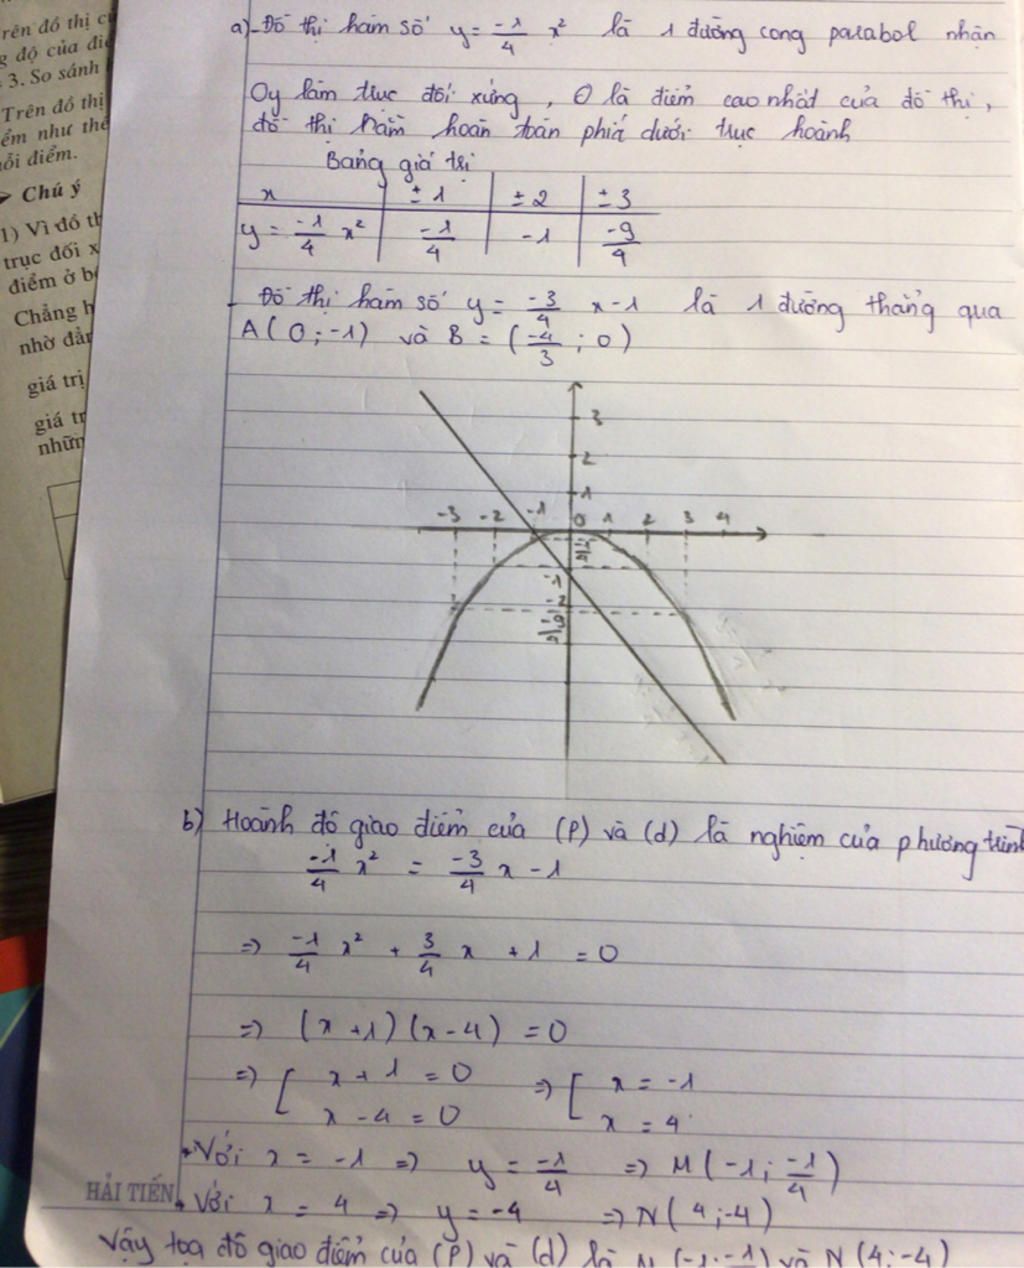 rên đồ thị c
g độ của đi
3. So sánh
Trên đồ thị
ểm như thế
ỗi điểm.
Chú ý
1) Vì đồ th
trục đối x
điểm ở b
Chẳng h
nhờ đẳn
giá trị
giá tr
nhữn
a) - Đồ thị hàm số y = -1/4 x² là 1 đường cong parabol nhận
Oy làm trục đối xứng, O là điểm cao nhất của đồ thị,
đồ thị nằm hoàn toàn phía dưới trục hoành
Bảng giá trị
x | ±1 | ±2 | ±3
y = -1/4 x² | -1/4 | -1 | -9/4
- Đồ thị hàm số y = -3/4 x - 1 là 1 đường thẳng qua
A(0; -1) và B = (-4/3; 0)
3
2
1
-3 -2 -1 0 1 2 3 4
-1
-2
b) Hoành độ giao điểm của (P) và (d) là nghiệm của phương trình
-1/4 x² = -3/4 x - 1
=> -1/4 x² + 3/4 x + 1 = 0
=> (x + 1)(x - 4) = 0
=> [ x + 1 = 0 => [ x = -1
x - 4 = 0 x = 4
Với x = -1 => y = -1/4 => M(-1; -1/4)
HẢI TIẾN
Với x = 4 => y = -4 => N(4; -4)
Vậy toạ độ giao điểm của (P) và (d) là M(-1; -1/4) và N(4; -4)